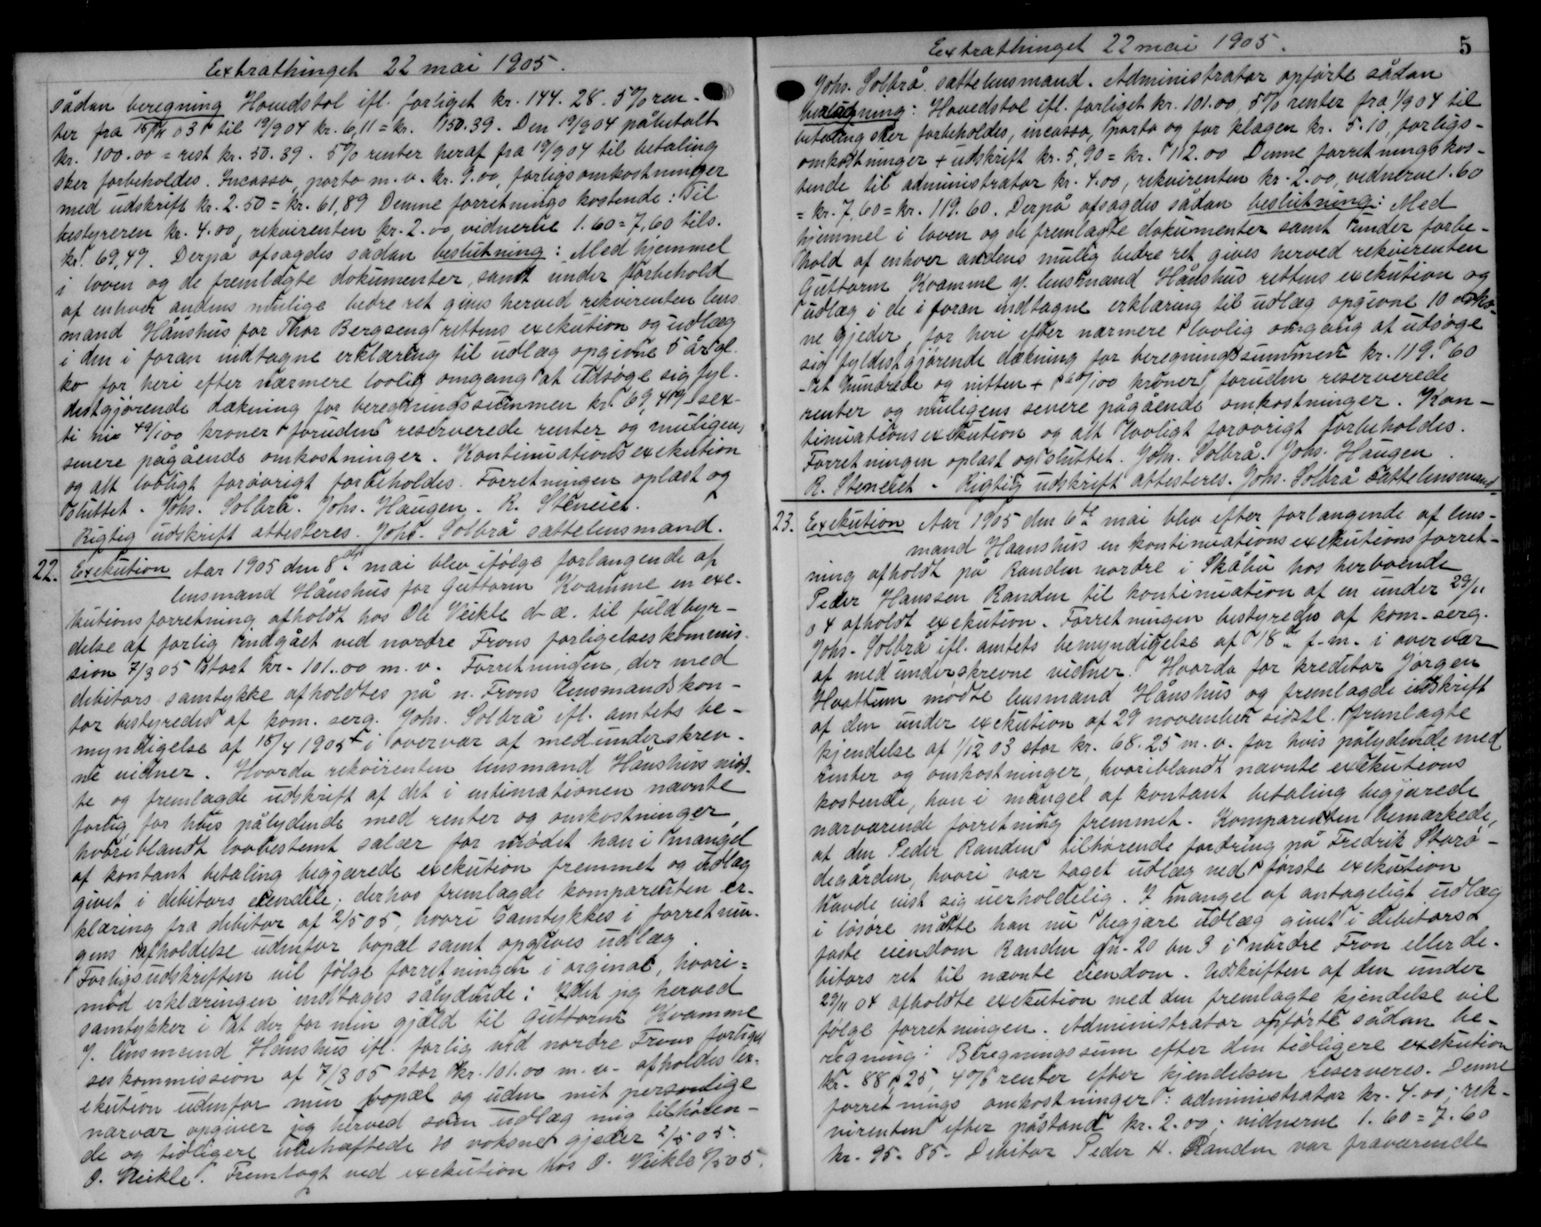 Extrathinget 22 mai 1905.
sådan beregning Hovedstol ifl. forliget kr. 144.28. 5% ren-
ter fra 15/11 03 til 19/9 04 kr. 6,11 = kr. 150.39. Den 19/9 04 påbetalt
kr. 100.00 = rest kr. 50.39. 5% renter heraf fra 19/9 04 til betaling
sker forbeholdes. Incasso, porto m.v. kr. 9.00, forligsomkostninger
med udskrift kr. 2.50 = kr. 61,89 Denne forretnings kostende: Til
bestyreren kr. 4.00, rekvirenten kr. 2.00, vidnerne 1.60 = 7,60 tils.
kr. 69,49. Derpå afsagdes sådan beslutning: Med hjemmel
i loven og de fremlagte dokumenter, samt under forbehold
af enhver andens mulige bedre ret gives herved rekvirenten lens
mand Hånshus for Thor Bergseng rettens exekution og udlæg
i den i foran indtagne erklæring til udlæg opgivne 5 år gl.
ko for heri efter nærmere lovlig omgang at udsøge sig fyl-
destgjørende dækning for beregningssummen kr. 69,49 sex-
ti ni 49/100 kroner foruden reserverede renter og muligens
senere pågående omkostninger. Kontinuations exekution
og alt lovligt forøvrigt forbeholdes. Forretningen oplæst og
sluttet. Johs. Solbrå. Johs. Haugen. R. Steneiet.
Rigtig udskrift attesteres. Johs. Solbrå sættelensmand.
22. Exekution Aar 1905 den 8de mai blev ifølge forlangende af
lensmand Hånshus for Guttorm Kvamme en exe-
kutionsforretning afholdt hos Ole Veikle d.æ. til fuldbyr-
delse af forlig indgået ved nordre Frons forligelseskommis-
sion 7/3 05 stort kr. 101.00 m.v. Forretningen, der med
debitors samtykke afholdtes på n. Frons lensmandskon-
tor bestyredes af kom. serg. Johs. Solbrå ifl. amtets be-
myndigelse af 18/4 1905 i overvær af medunderskrev-
ne vidner. Hvorda rekvirenten lensmand Hånshus mød-
te og fremlagde udskrift af det i intimationen nævnte
forlig, for hvis pålydende med renter og omkostninger,
hvoriblandt lovbestemt salær for mødet han i mangel
af kontant betaling begjærede exekution fremmet og udlæg
givet i debitors eiendele; derhos fremlagde komparenten er-
klæring fra debitor af 2/5 05, hvori samtykkes i forretnin-
gens afholdelse udenfor bopæl samt opgives udlæg
Forligsudskriften vil følge forretningen i orginal, hvori-
mod erklæringen indtages sålydende: Idet jeg herved
samtykker i at der for min gjæld til Guttorm Kvamme
v. lensmand Hånshus ifl. forlig ved nordre Frons forligel
ses kommission af 7/3 05 stor kr. 101.00 m.v. afholdes ex-
ekution udenfor min bopæl og uden mit personlige
nærvær opgiver jeg herved som udlæg mig tilhøren-
de og tidligere ubehæftede 10 voksne gjeder 2/5 05.
O. Veikle. Fremlagt ved exekution hos O. Veikle 8/5 05.
Extrathinget 22 mai 1905.
5
Johs. Solbrå sættelensmand. Administrator opførte sådan
beregning: Hovedstol ifl. forliget kr. 101.00, 5% renter fra 1/9 04 til
betaling sker forbeholdes, incasso, porto og for klagen kr. 5.10, forligs-
omkostninger + udskrift kr. 5,90 = kr. 112.00 Denne forretnings kos-
tende til administrator kr. 4.00, rekvirenten kr. 2.00, vidnerne 1.60
= kr. 7,60 = kr. 119.60. Derpå afsagdes sådan beslutning: Med
hjemmel i loven og de fremlagte dokumenter samt under forbe-
hold af enhver andens mulig bedre ret gives herved rekvirenten
Guttorm Kvamme v. lensmand Hånshus rettens exekution og
udlæg i de i foran indtagne erklæring til udlæg opgivne 10 voks-
ne gjeder, for heri efter nærmere lovlig omgang at udsøge
sig fyldestgjørende dækning for beregningssummen kr. 119.60
- et hundrede og nitten + 60/100 kroner foruden reserverede
renter og muligens senere pågående omkostninger. Kon-
tinuationsexekution og alt lovligt forøvrigt forbeholdes.
Forretningen oplæst og sluttet. Johs. Solbrå. Johs. Haugen.
R. Steneiet. Rigtig udskrift attesteres. Johs. Solbrå sættelensmand
23. Exekution Aar 1905 den 6te mai blev efter forlangende af lens-
mand Haanshus en kontinuationsexekutionsforret-
ning afholdt på Randen nordre i Skåbu hos herboende
Peder Hanssen Randen til kontinuation af en under 29/11
04 afholdt exekution. Forretningen bestyredes af kom. serg.
Johs. Solbrå ifl. amtets bemyndigelse af 18de f.m. i overvær
af medunderskrevne vidner. Hvorda for kreditor Jørgen
Hvattum mødte lensmand Hånshus og fremlagde udskrift
af den under exekution af 29 november sidstl. fremlagte
kjendelse af 1/12 03 stor kr. 68.25 m.v. for hvis pålydende med
renter og omkostninger, hvoriblandt nævnte exekutions
kostende, han i mangel af kontant betaling begjærede
nærværende forretning fremmet. Komparenten bemærkede,
at den Peder Randen tilhørende fordring på Fredrik Storø-
degården, hvori var taget udlæg ved første exekution
havde vist sig uerholdelig. I mangel af antageligt udlæg
i løsøre måtte han nu begjære udlæg givet i debitors
faste eiendom Randen gn. 20 bn 3 i nordre Fron eller de-
bitors ret til nævnte eiendom. Udskriften af den under
29/11 04 afholdte exekution med den fremlagte kjendelse vil
følge forretningen. Administrator opførte sådan be-
regning: Beregningssum efter den tidligere exekution
kr. 88,25, 4% renter efter kjendelsen reserveres. Denne
forretnings omkostninger: administrator kr. 4.00; rek-
virenten efter påstand kr. 2.00; vidnerne 1.60 = 7.60
kr. 95.85. Debitor Peder H. Randen var fraværende